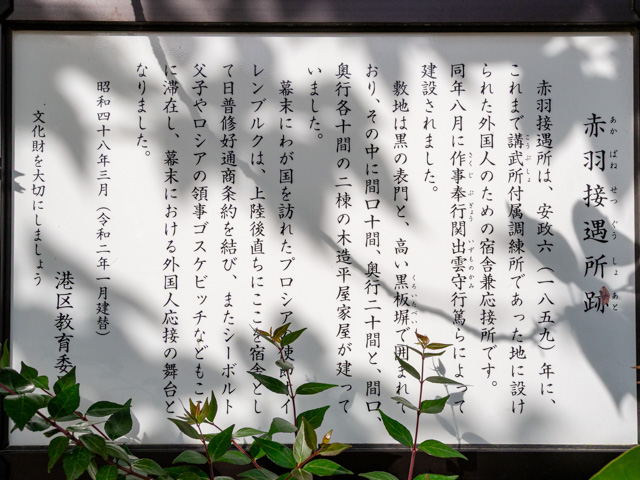 赤羽接遇所跡
あかばねせつぐうしょあと
赤羽接遇所は、安政六（一八五九）年に、
これまで講武所付属調練所であった地に設け
こうぶしょ
られた外国人のための宿舎兼応接所です。
同年八月に作事奉行関出雲守行篤らによって
さくじぶぎょう
いずものかみ
建設されました。
敷地は黒の表門と、高い黒板塀で囲まれて
くろいたべい
おり、その中に間口十間、奥行二十間と、間口、
奥行各十間の二棟の木造平屋家屋が建って
いました。
幕末にわが国を訪れたプロシア
イ
レンブルクは、上陸後直ちにここを宿舎とし
て日普修好通商条約を結び、またシーボルト
父子やロシアの領事ゴスケビッチなどもこ
に滞在し、幕末における外国人応接の舞台と
なりました。
昭和四十八年三月（令和二年一月建替）
文化財を大切にしましょう
港区教育委